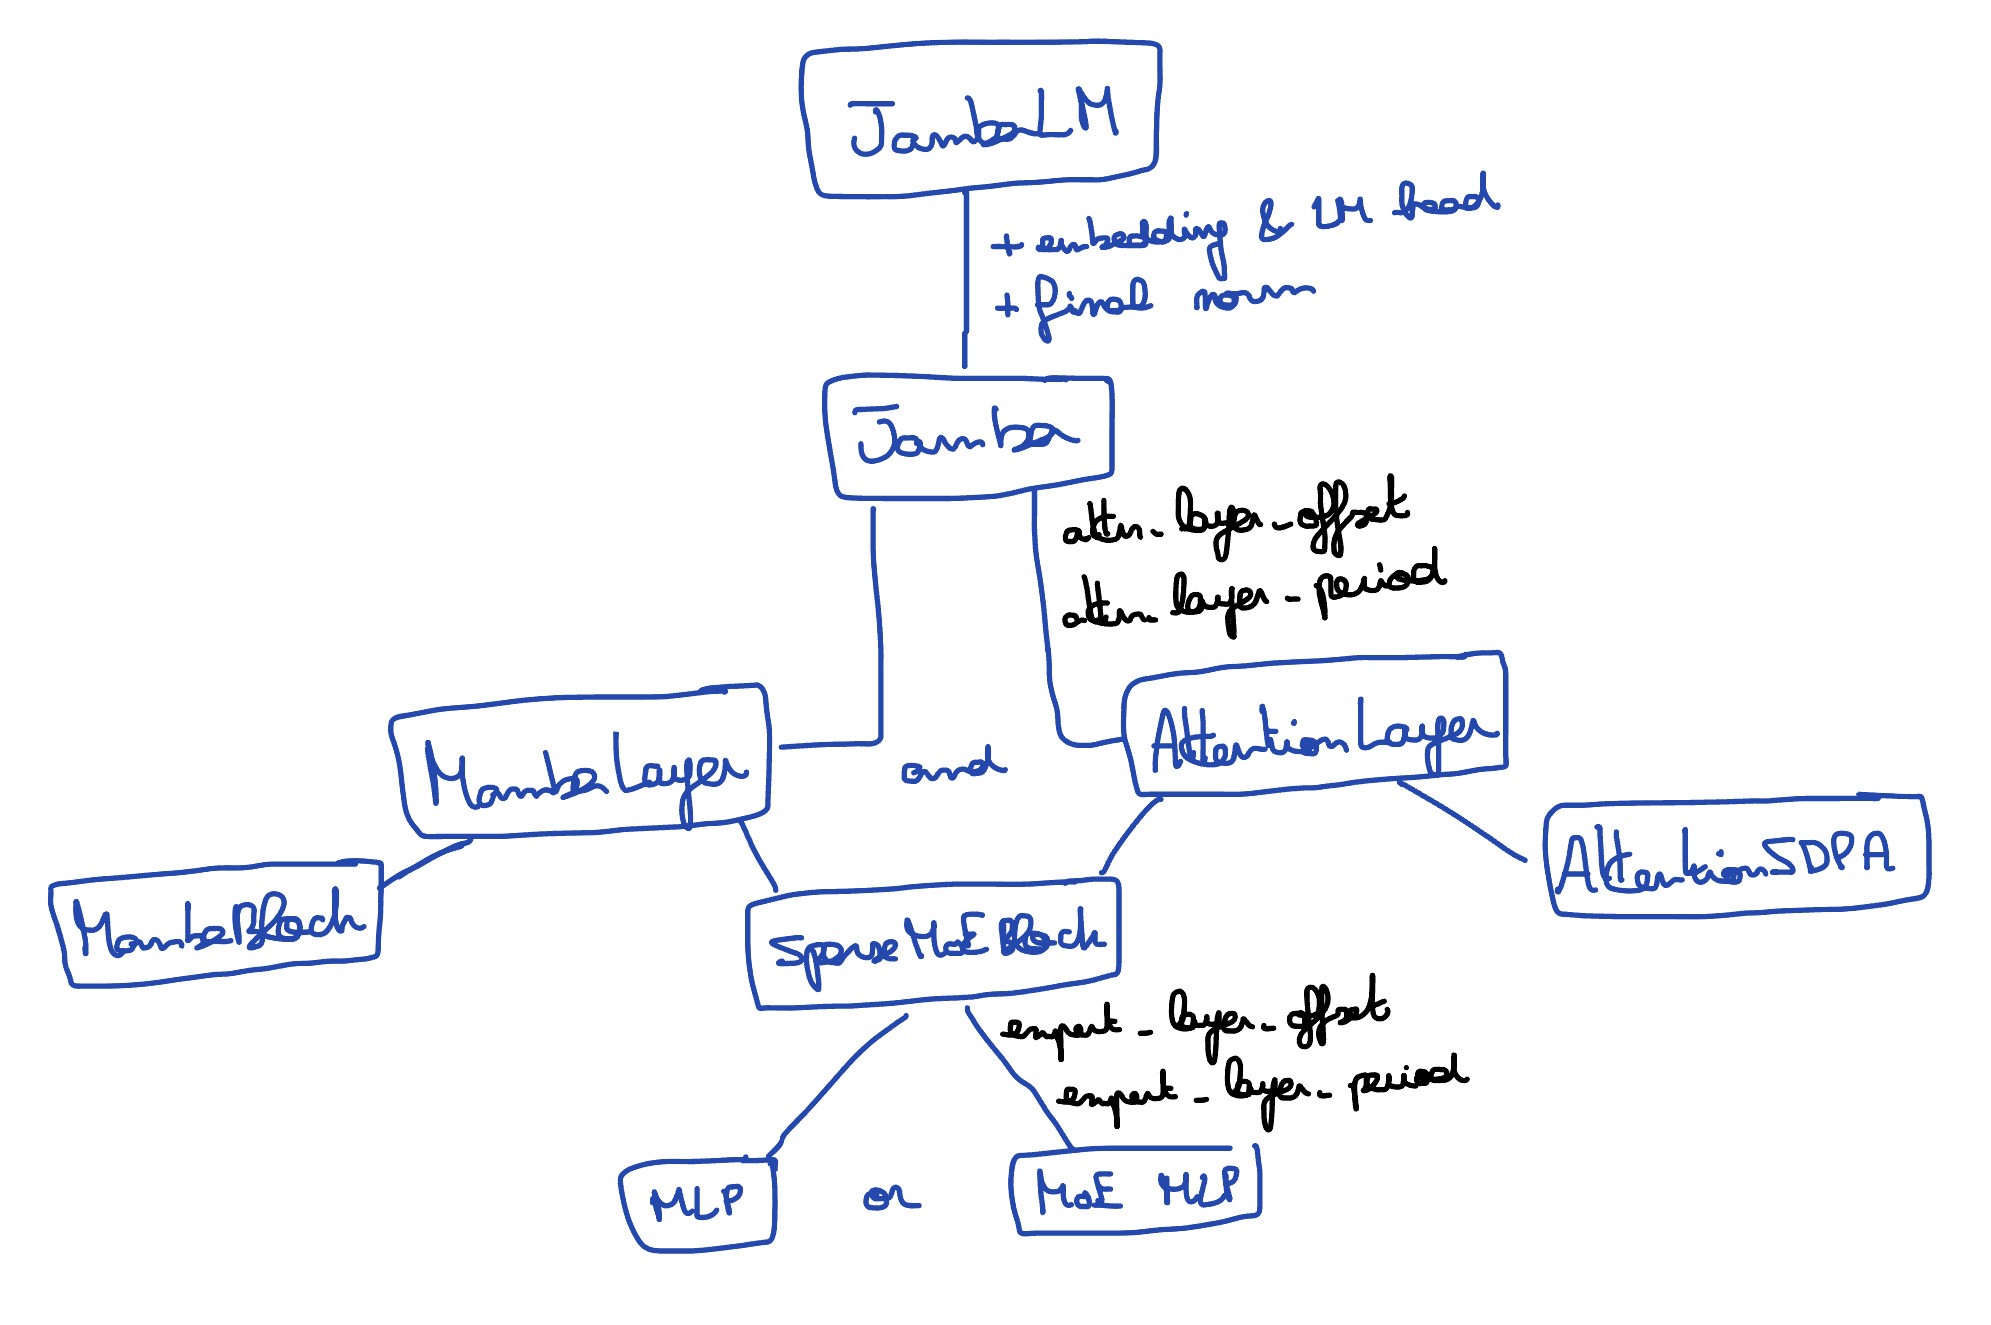 JambaLM
+ embedding & LM head
+ final norm
Jamba
attn_layer_offset
attn_layer_period
MambaLayer
and
AttentionLayer
MambaBlock
SparseMoEBlock
AttentionSDPA
expert_layer_offset
expert_layer_period
MLP
or
MoE MLP